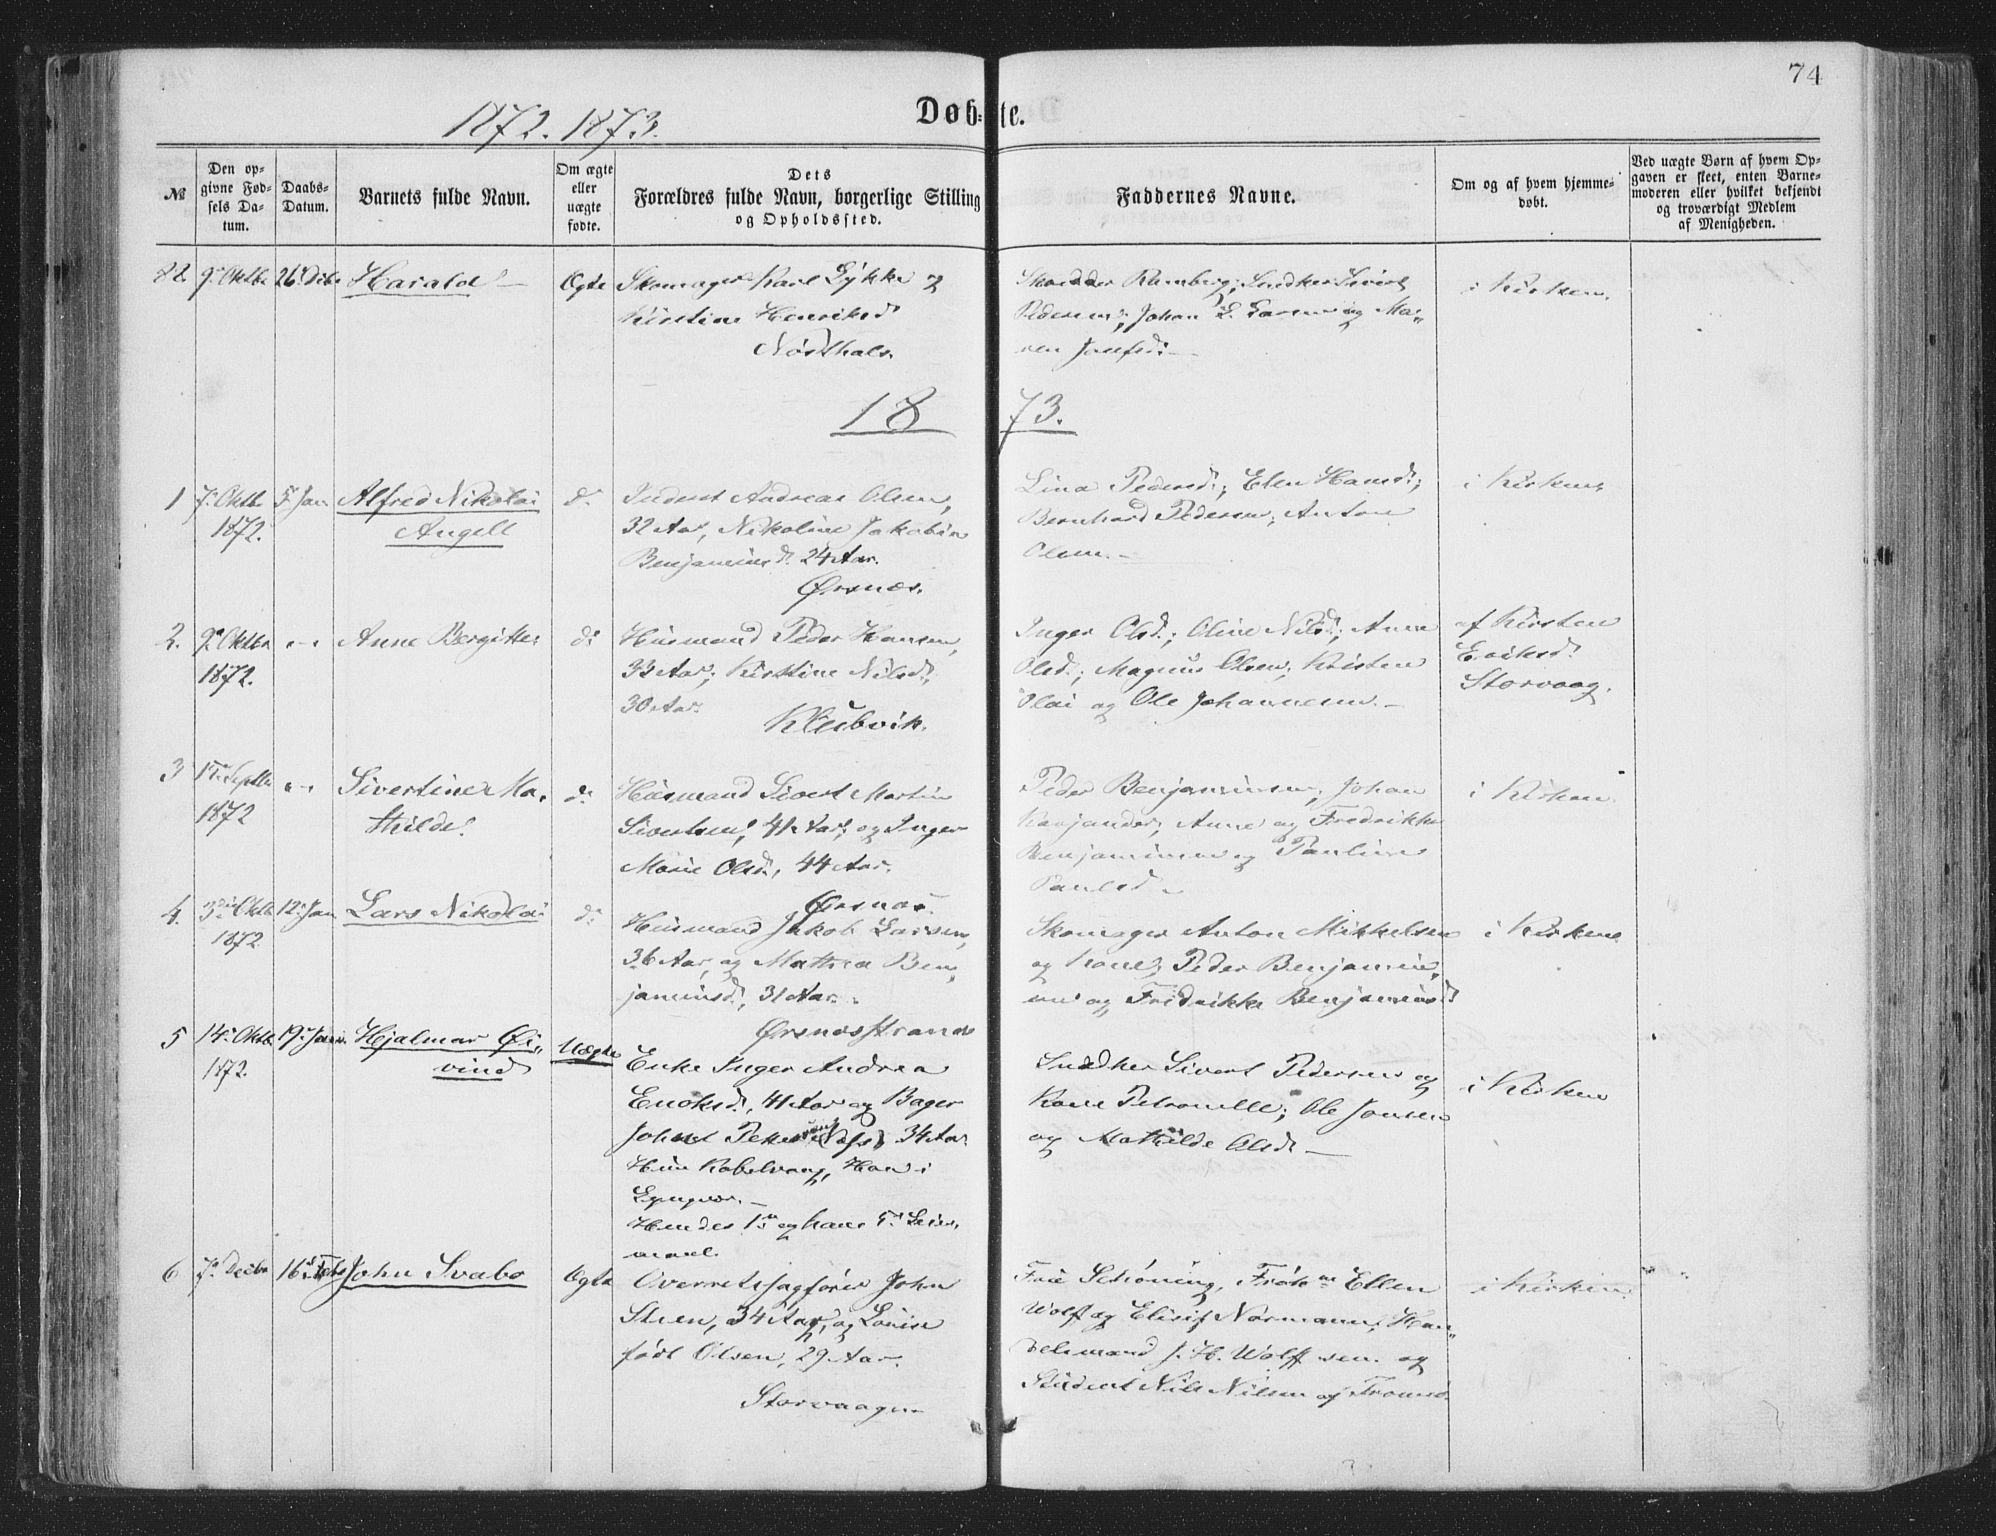 74
1872. 1873.
Døb-te.
№
Den op-
givne Fød-
sels Da-
tum.
Daabs-
Datum.
Barnets fulde Navn.
Om ægte
eller
uægte
fødte.
Dets
Forældres fulde Navn, borgerlige Stilling
og Opholdssted.
Faddernes Navne.
Om og af hvem hjemme-
døbt.
Ved uægte Børn af hvem Op-
gaven er skeet, enten Barne-
moderen eller hvilket bekjendt
og troværdigt Medlem
af Menigheden.
82. 9de Oktbr 26de Decbr Harald Ægte
Skomager Karl Lykke og
Kristine Henriksd.
Skrædder Ramberg; Snedker Sivert
Pedersen; Johan L. Larsen og Ma-
ren Josefsd.
i Kirken.
1873.
1 7de Oktbr 1872. 5te Jan Alfred Nikolai
Angell
do
Inderst Andreas Olsen,
32 Aar, Nikoline Jakobine
Benjaminsd. 24 Aar.
Ørsnæs.
Lina Pedersd.; Elen Hansd.;
Bernhard Pedersen; Anton
Olsen.
i Kirken
2. 9de Oktbr 1872. Anne Bergitte do
Husmand Peder Hansen,
33 Aar; Kristine Nilsd.,
30 Aar.
Kleubvik.
Inger Olsd.; Oline Nilsd.; Anne
Olsd.; Magnus Olsen; Kristen
Olai og Ole Johannesen.
af Kirsten
Eriksd.
Storvaag.
3 17de Septbr 1872 Sivertine Ma-
thilde
do
Husmand Sivert Martin
Sivertsen, 41 Aar, og Inger
Marie Olsd., 44 Aar.
Ørsnæs.
Peder Benjaminsen; Johan
Anne og Fredrikke
Benjaminsen og Pauline
Paulsd.
i Kirken
4. 3die Oktbr 1872 12te Jan Lars Nikolai do
Husmand Jakob Larsen,
36 Aar, og Mathea Ben-
jaminsd., 31 Aar.
Ørsnæsstrand
Skomager Anton Mikkelsen
og Kone; Peder Benjamin-
sen og Fredrikke Benjaminsd.
i Kirken
5 14de Oktbr 1872. 19de Janr Hjalmar Øi-
vind
Uægte
Enke Inger Andrea
Enoksd., 41 Aar og Bager
34 Aar
Hun Kabelvaag, Han i
Hendes 1ste og hans 5te Leier-
maal.
Snedker Sivert Pedersen og
Kone Petronelle; Ole Jonsen
og Mathilde Olsd.
i Kirken
6 7de Decbr 16de Febr John Svabo Ægte
Overretssagfører John
Steen, 34 Aar, og Louise
født Olsen, 29 Aar.
Storvaagen
Frue Schøning, Frøkne Ellen
Wolff og Elisif Normann, Han-
delsmand J. H. Wolff sen. og
Student Nils Nilsen af Tromsø.
i Kirken